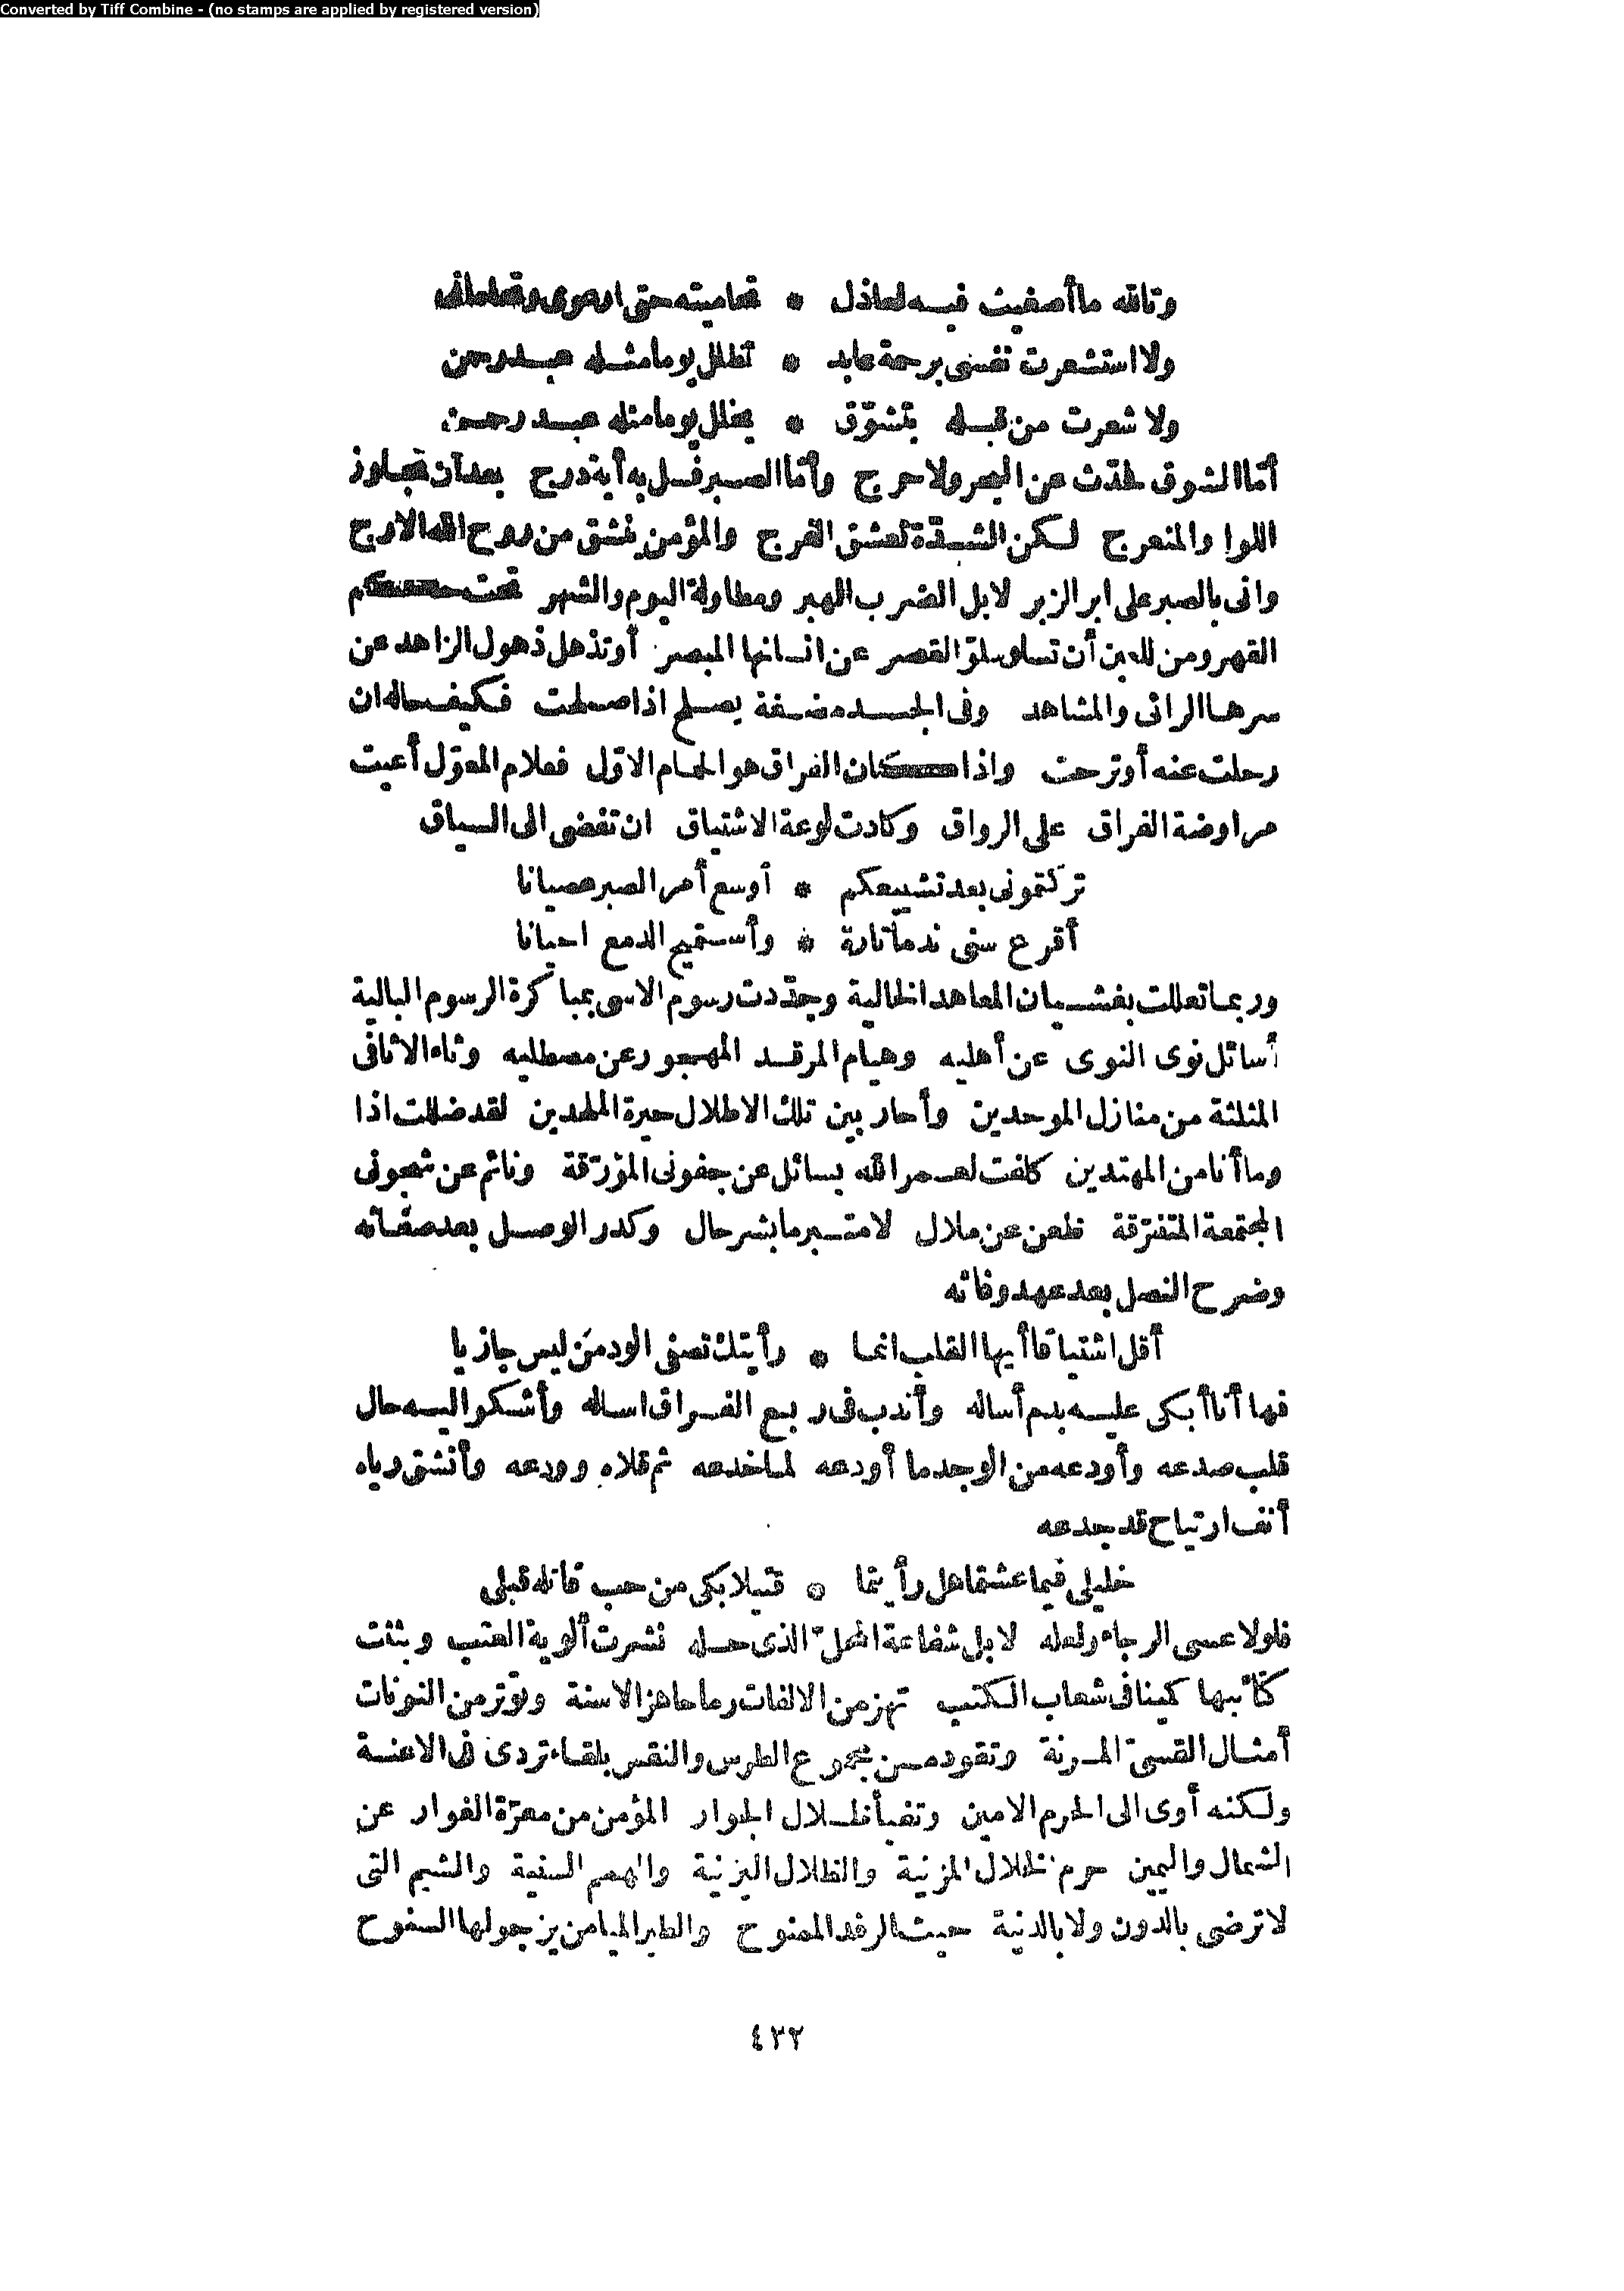 Converted by Tiff Combine - (no stamps are applied by registered version)
وتالله ماأصغيت فيه لعاذل * تحاميته حتى ارعوى وتحامانى
ولااستشعرت نفسى برحمة عابد * تظلل يومامثله عبدرحمن
ولا شعرت من قبله بتشوّق * يظلل يومامثله عبد رحمن
أمّاالشوق فحدّث عن البحرولاحرج وأمّاالصبرفسل به أية درج بعدأن تجاوز
اللوا والمنعرج لكن الشدّة تعشق الفرج والمؤمن ينشق من روح الله الارج
وانى بالصبرعلى ابرالزبر لابل الضرب الهبر ومطاولة اليوم والشهر تحت حكم
القهرومن للعين أن تسلوسلوّ القصر عن انسانها المبصر أوتذهل ذهول الزاهد عن
سرهاالرائى والمشاهد وفى الجسدمضغة يصلح اذاصلحت فكيف حاله ان
رحلت عنه أونزحت واذاكان الفراق هوالحمام الاوّل فعلام المعوّل أعيت
مراوضة الفراق على الرواق وكادت لوعة الاشتياق ان تفضى الى السياق
تركتمونى بعد تشييعكم * أوسع أمر الصبر عصيانا
أقرع سنى ندما تارة * وأستميح الدمع احيانا
وربماتعللت بغشيان المعاهد الخالية وجدّدت رسوم الاسى بمباكرة الرسوم البالية
أسائل نوى النوى عن أهليه وهيام المرقد المهجورعن مصطليه وثاء الاثافى
المثلثة من منازل الموحدين وأحار بين تلك الاطلال حيرة الملحدين لقد ضللت اذا
وماأنامن المهتدين كلفت لعمرالله بسائل عن جفونى المؤرّقة ونائم عن شجونى
المجتمعة المتفرّقة ظعن عن ملال لامتبرمابشرحال وكدر الوصل بعد صفائه
وضرح النصل بعد عهد وفائه
أقل اشتياقاأيها القلب انما * رأيتك تصفى الودمن ليس جازيا
فهاأناأبكى عليه بدم أساله وأندب فى ربع الفراق اساله وأشكواليه حال
قلب صدعه وأودعه من الوجد ما أودعه لماخدعه ثم قلاه وودعه وأنشق رياه
أنف ارتياح قد جدعه
خليلى فيماعشتماهل رأيتما * قتيلا بكى من حب قاتله قبلى
فلولا عسى الرجاء ولعله لابل شفاعة المحلّ الذى حله نشرت ألوية العتب وبثثت
كتائبها كمينا فى شعاب الكتب تهزمن الالفات رماحاهزالاسنة وتوترمن النونات
أمثال القسىّ المرنة وتقودمن مجموع الطرس والنقس بلقاء تردى فى الاعنة
ولكنه أوى الى الحرم الامين وتفيأ ظلال الجوار المؤمن من معرّة الغوار عن
الشمال واليمين حرم الخلال المزنية والظلال اليزنية والهمم السنية والشيم التى
لاترضى بالدون ولابالدنية حيث الرفد الممنوح والطير الميامن يزجرلها السنوح
٤٣٢